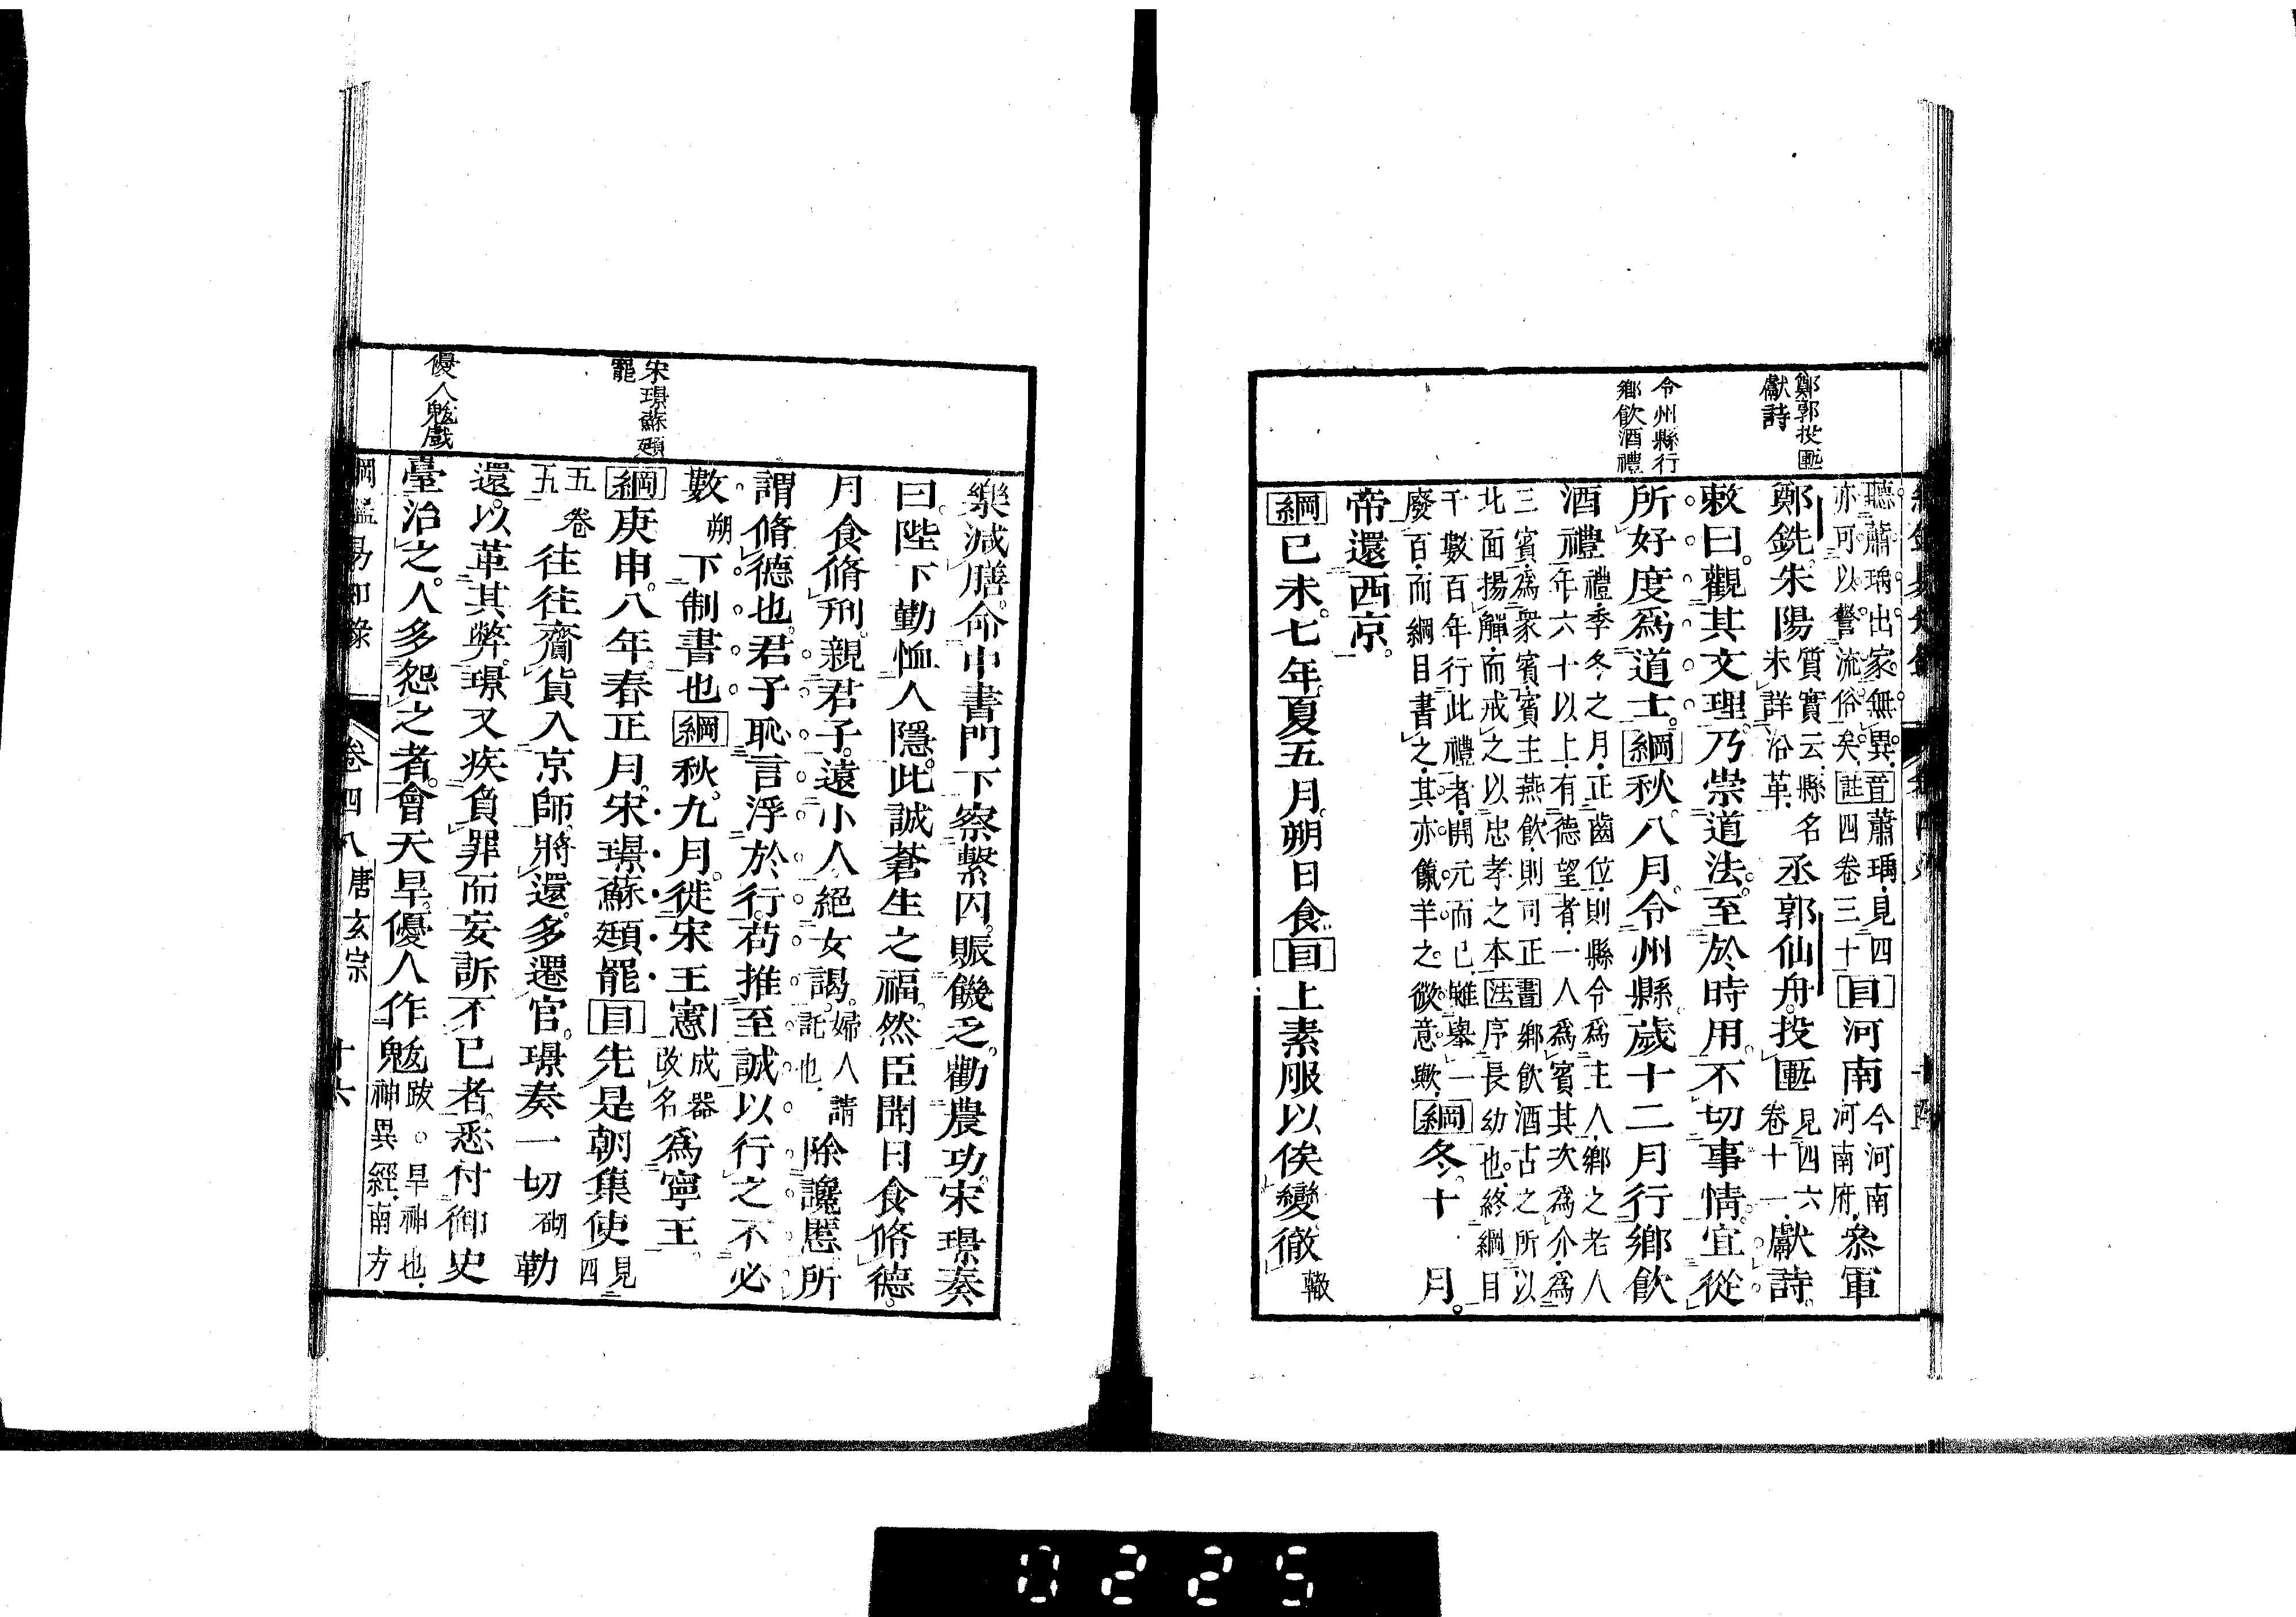 鄭郭投匭
獻詩
令州縣行
鄉飲酒禮
聽蕭瑀出家無異音蕭瑀見四
亦可以警流俗矣註四卷三十目河南今河南
河南府參軍
鄭銑朱陽質實云縣名
未詳沿革丞郭仙舟投匭見四六
卷十一獻詩
敕曰觀其文理乃崇道法至於時用不切事情宜從
所好度為道士綱秋八月令州縣歲十二月行鄉飲
酒禮禮季冬之月正齒位則縣令為主人鄉之老人
年六十以上有德望者一人為賓其次為介為
三賓為衆賓賓主燕飲則司正書鄉飲酒古之所以
北面揚觶而戒之以忠孝之本法序長幼也終綱目
千數百年行此禮者開元而已雖舉一
廢百而綱目書之其亦餼羊之微意歟綱冬十一月
帝還西京
綱己未七年夏五月朔日食目上素服以俟變徹轍
宋璟蘇頲
罷
優人魃戲
樂減膳命中書門下察繫囚賑饑乏勸農功宋璟奏
曰陛下勤恤人隱此誠蒼生之福然臣聞日食脩德
月食脩刑親君子遠小人絕女謁婦人請
託也除讒慝所
謂脩德也君子恥言浮於行苟推至誠以行之不必
數朔下制書也綱秋九月徙宋王憲成器
改名為寧王
綱庚申八年春正月宋璟蘇頲罷目先是朝集使見四
五卷
五往往齎貨入京師將還多遷官璟奏一切砌勒
還以革其弊璟又疾負罪而妄訴不已者悉付御史
臺治之人多怨之者會天旱優人作魃跋旱神也
神異經南方
綱鑑易知錄 卷四八 唐玄宗 十六